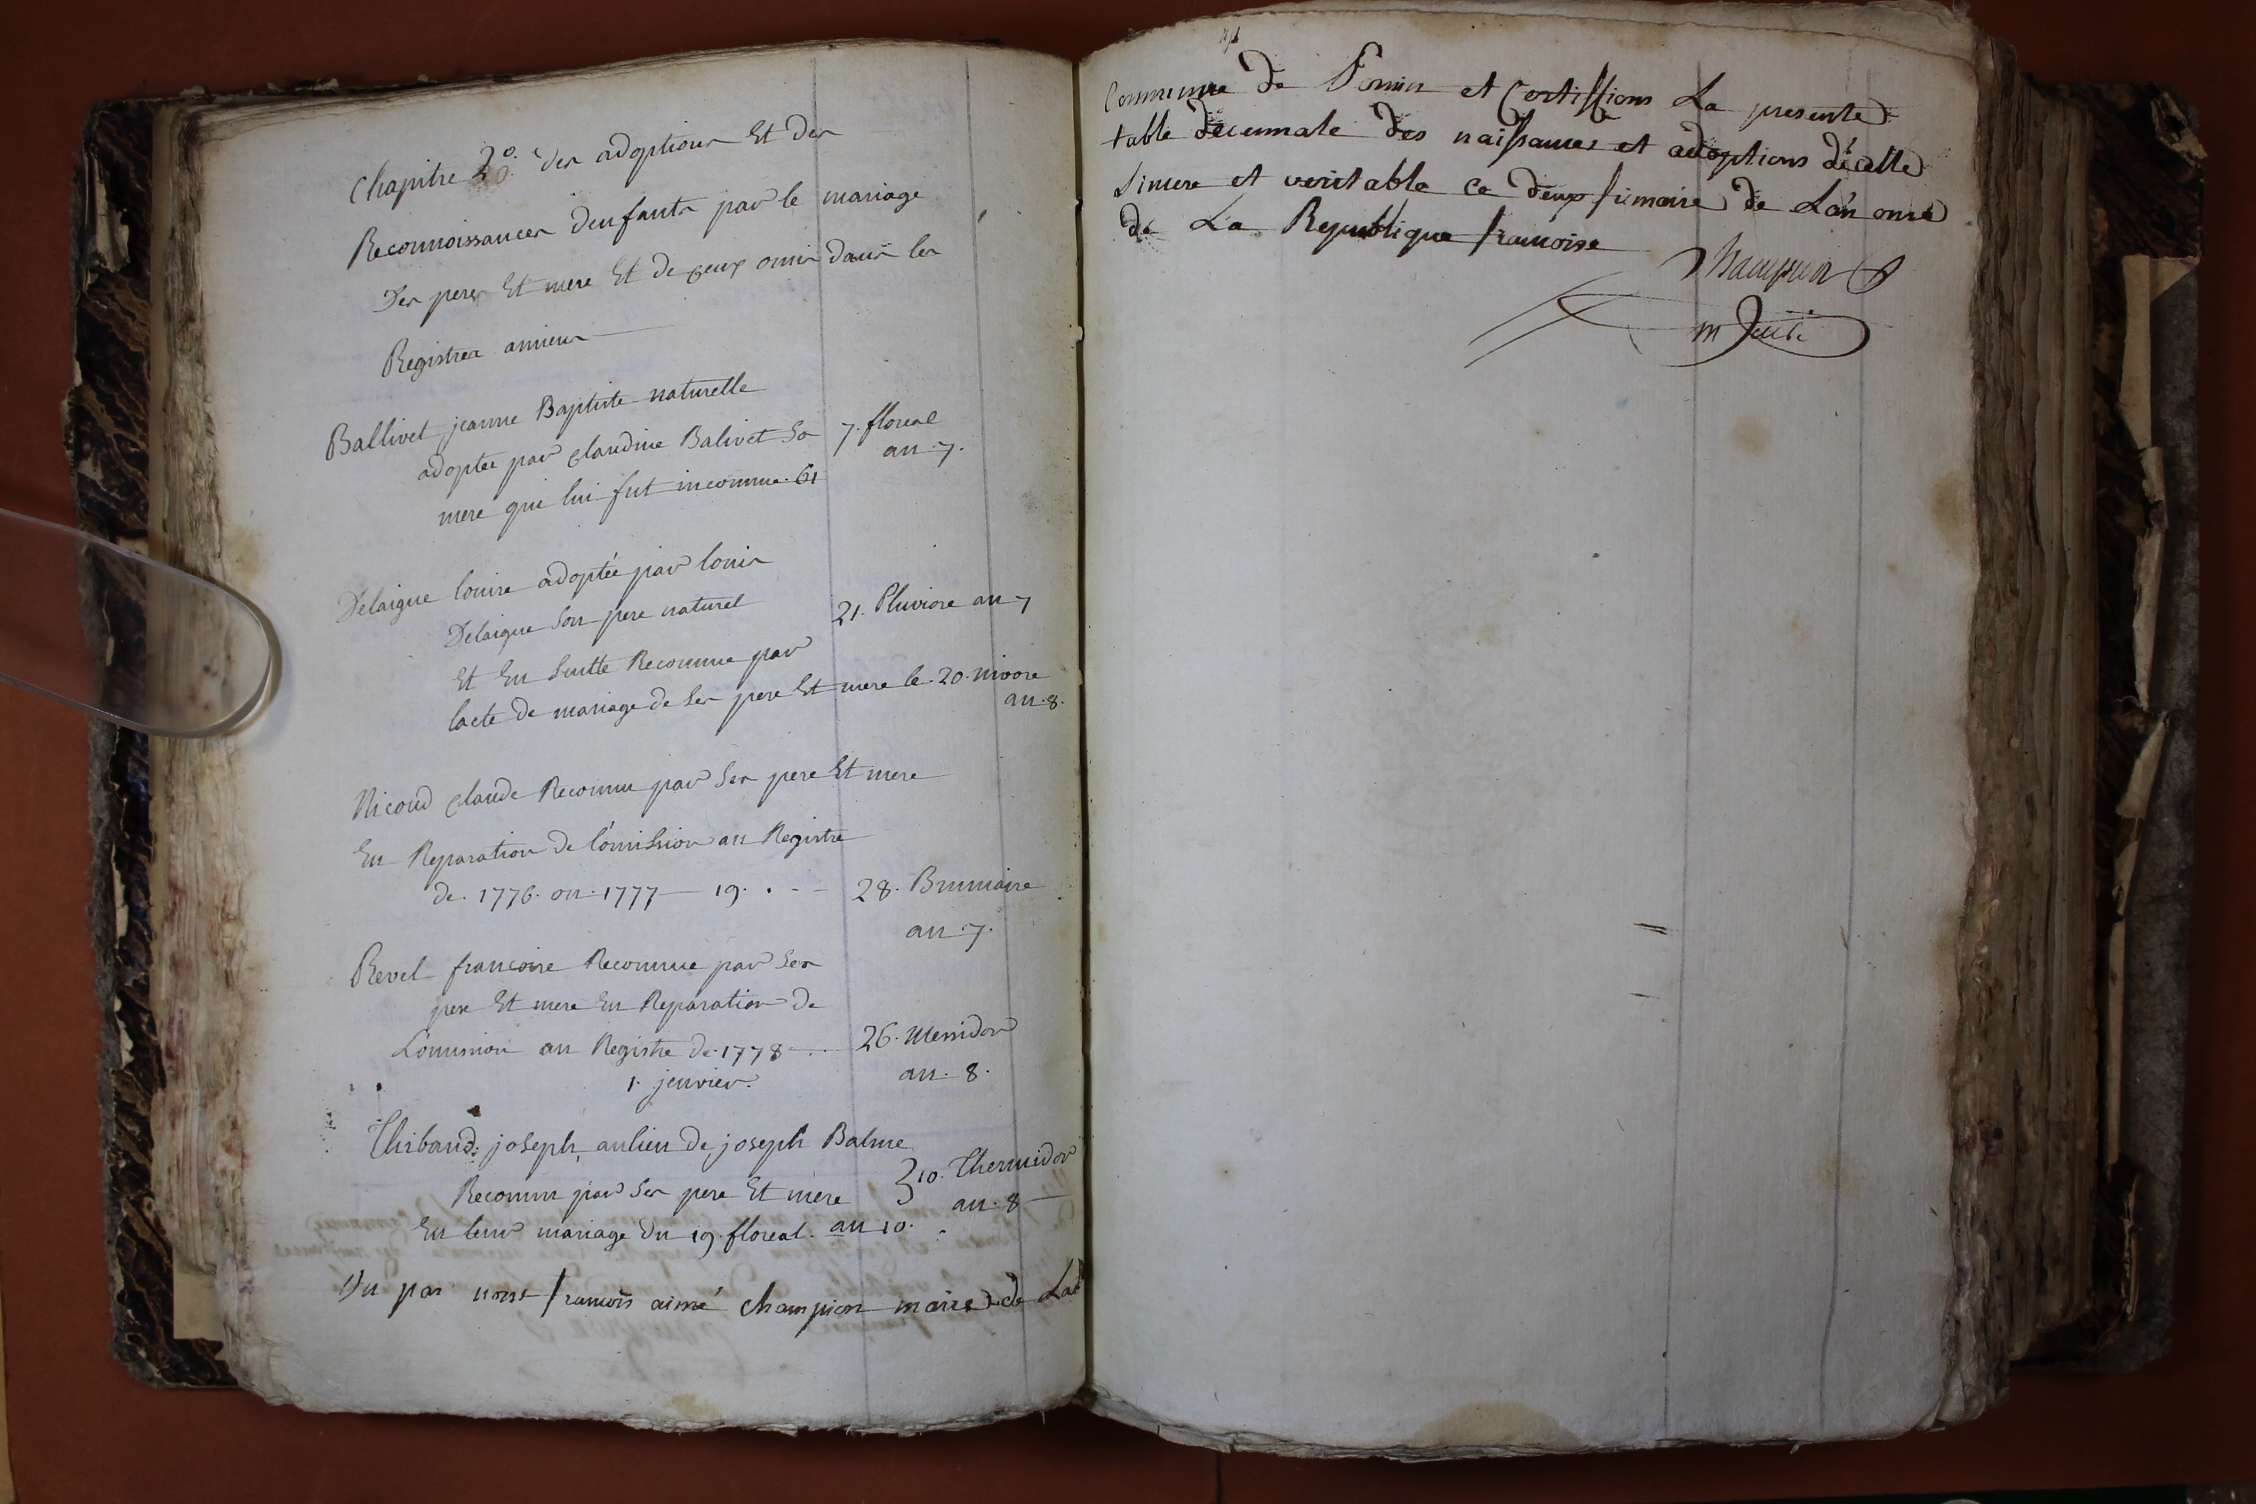 Chapitre 2º. des adoptions Et des
Reconnoissances denfants par le mariage
des peres Et mere Et de ceux omis dans les
Registres anciens
Ballivet jeanne Baptiste naturelle
adoptée par claudine Balivet Sa
mere qui lui fut inconnue. 61
7. floreal
an 7.
Delaigue louise adoptée par louis
Delaigue Son pere naturel
21. Pluviose an 7
Et En Suitte Reconnue par
lacte de mariage de Ses pere Et mere le 20. nivose
an. 8.
Nicoud claude Reconnu par Ses pere Et mere
En Reparation de l'omission au Registre
de 1776. ou 1777 — 19.
28. Brumaire
an 7.
Revel francoise Reconnue par Ses
pere Et mere En Reparation de
L'omission au Registre de 1778
1. jenvier.
26. Messidor
an. 8.
Thibaud: joseph, aulieu de joseph Balme
Reconnu par Ses pere Et mere
10. Thermidor
an. 8
En leur mariage du 19. floreal. an 10.
Vu par nous francois aimé champion maire de La
Commune de et Certiffions La presente
table decennale des naissances et adoptions d'icelle
Sincere et veritable ce deux frimaire de Lan onze
de La Republique francoise
Champion